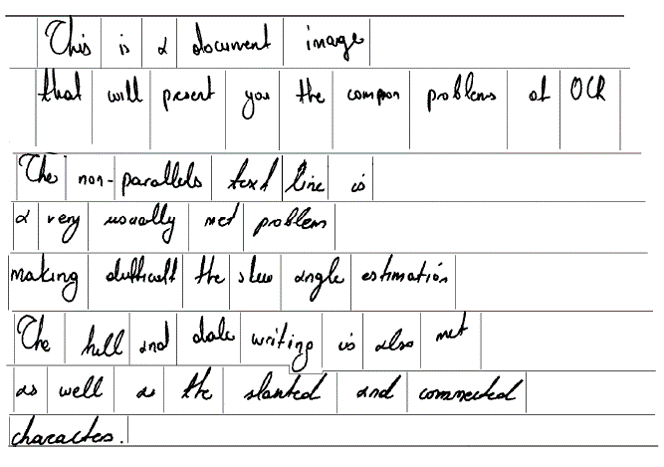 This is a document image
that will present you the common problems of OCR
The non-parallels text line is
a very usually met problem
making difficult the skew angle estimation
The hill and dale writing is also met
as well as the slanted and connected
charactes.